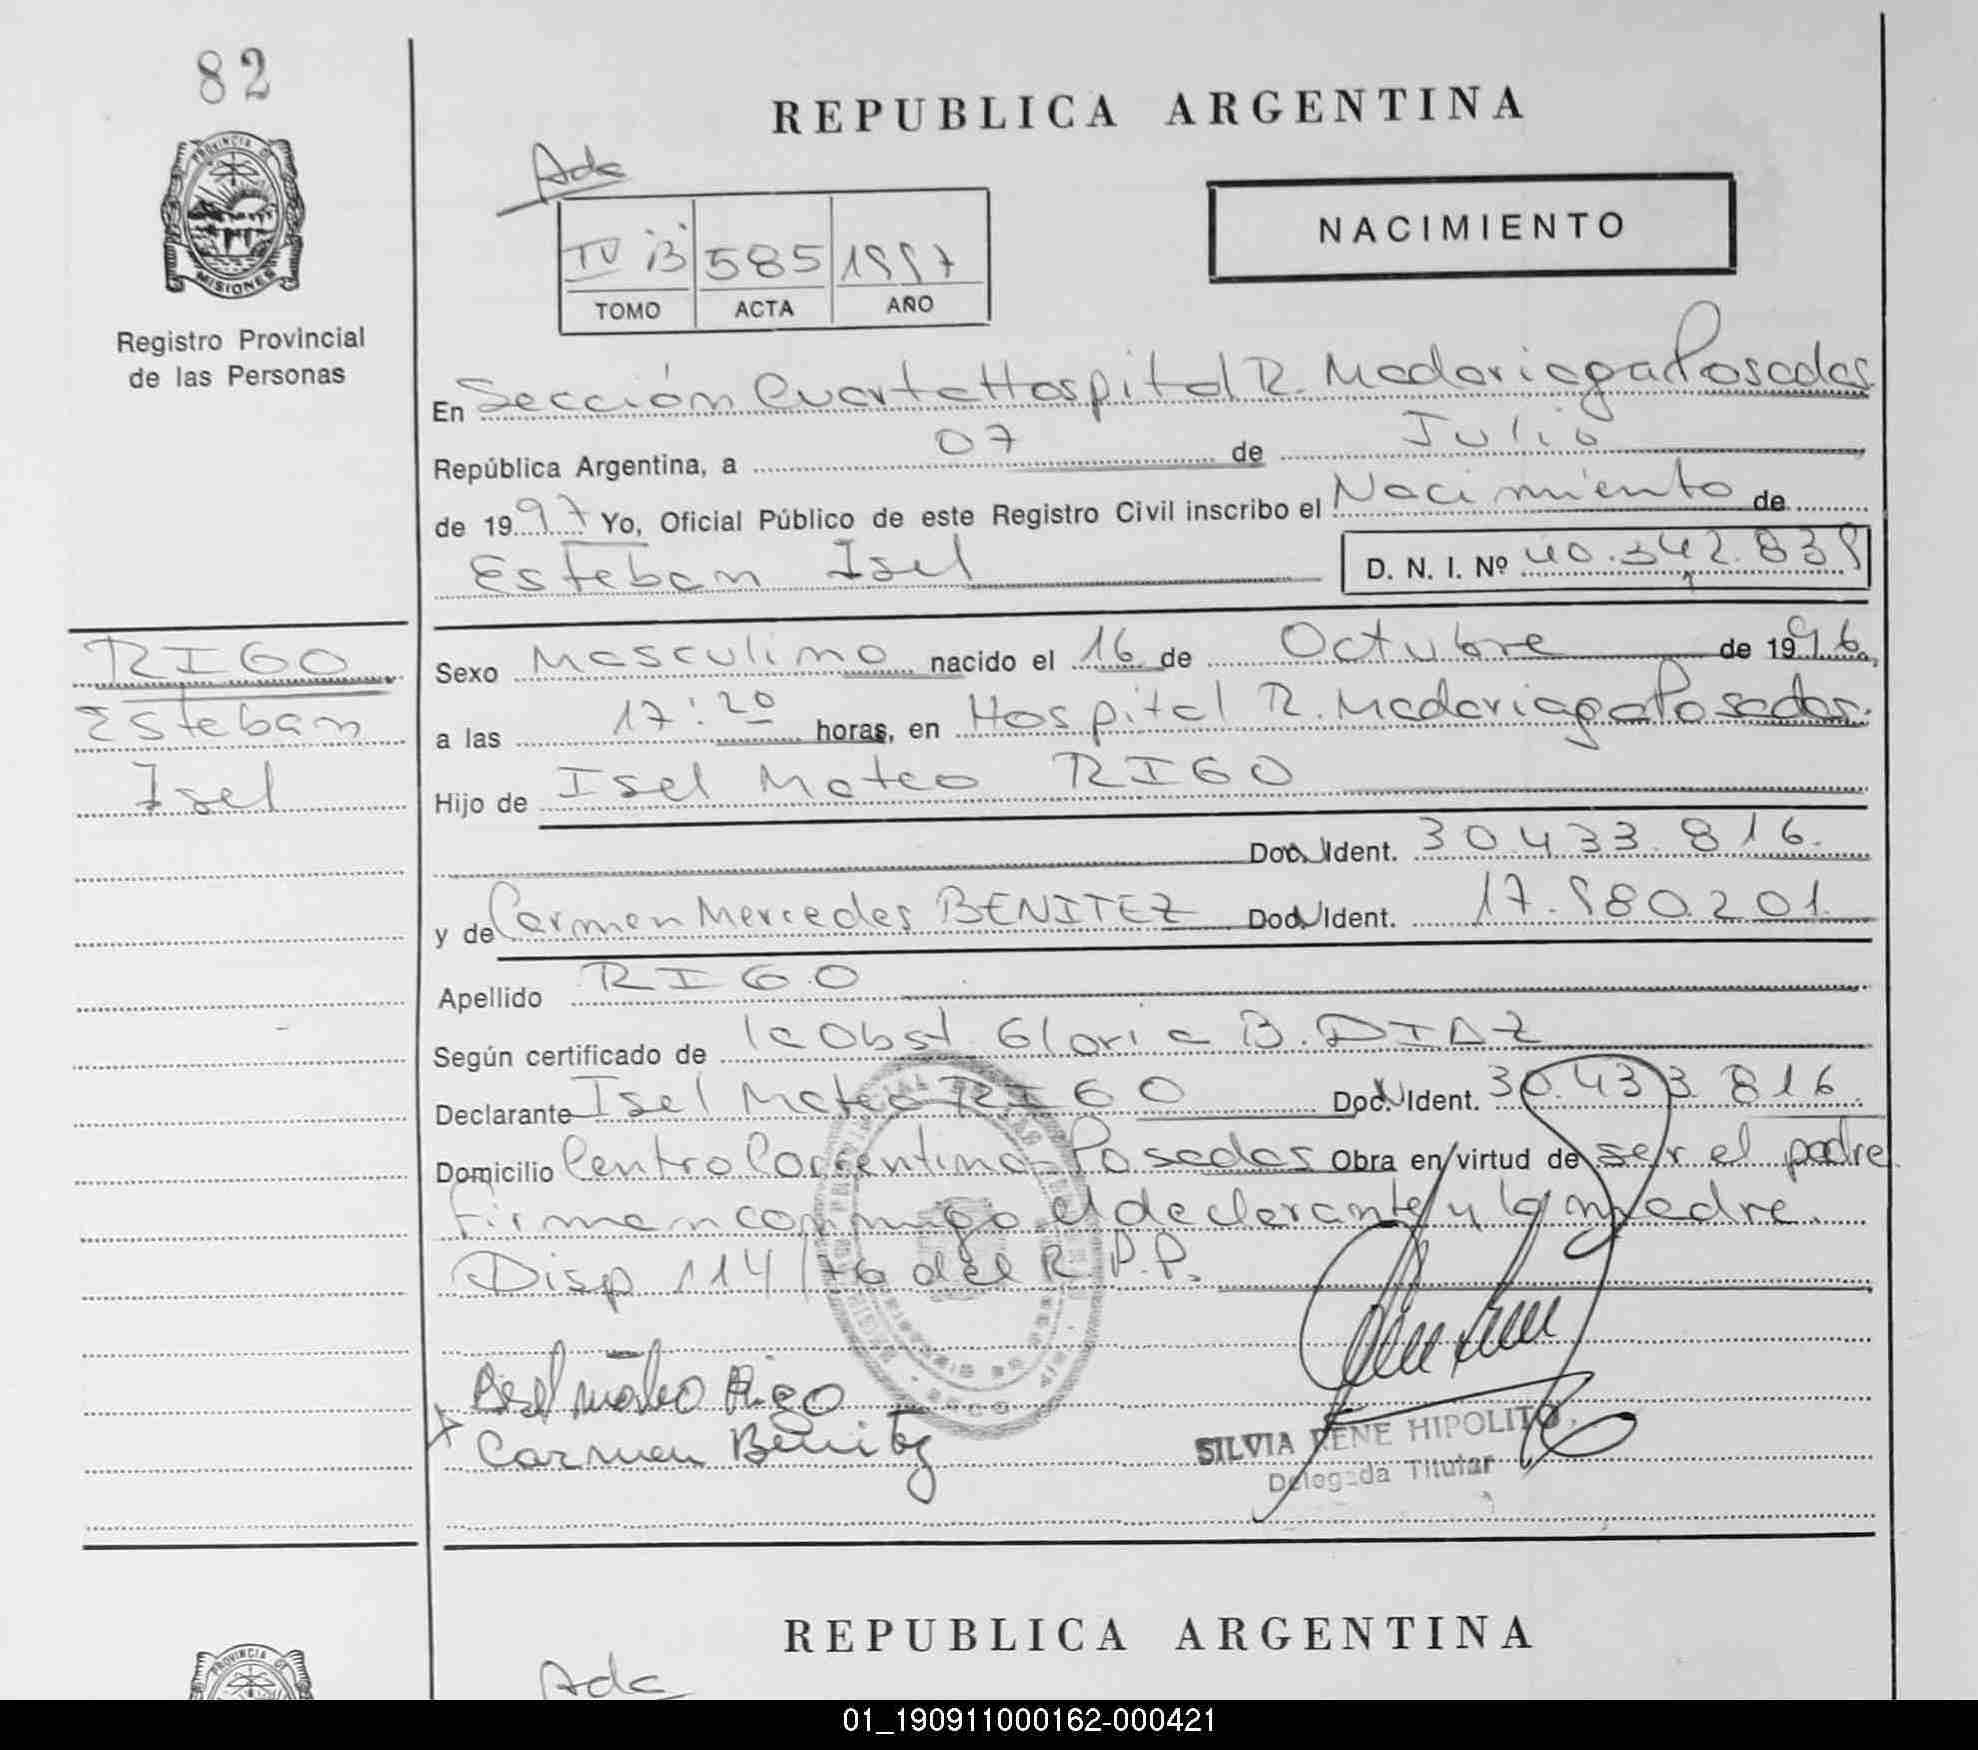 82
REPUBLICA ARGENTINA
Ada
NACIMIENTO
PROVINCIA DE
MISIONES
IV "B" 585 1997
TOMO ACTA AÑO
Registro Provincial
de las Personas
En Sección Cuarta Hospital R. Madariaga Posadas
República Argentina, a 07 de Julio
de 1997 Yo, Oficial Público de este Registro Civil inscribo el Nacimiento de
Esteban Isel D. N. I. Nº 40.342.839
RIGO
Esteban
Isel
Sexo Masculino nacido el 16 de Octubre de 1996,
a las 17:20 horas, en Hospital R. Madariaga Posadas.
Hijo de Isel Mateo RIGO
Doc. Ident. 30.433.816.
y de Carmen Mercedes BENITEZ Doc. Ident. 17.980.201
Apellido RIGO
Según certificado de la Obst. Gloria B. DIAZ
Declarante Isel Mateo RIGO Doc. Ident. 30.433.816.
Domicilio Centro Correntino - Posadas Obra en virtud de ser el padre
firman conmigo el declarante y la madre.
Disp 114/76 del R.P.P.
Isel mateo Rigo
Carmen Benitez
SILVIA RENE HIPOLITO
Delegada Titular
REPUBLICA ARGENTINA
PROVINCIA DE
Ada
01_190911000162-000421